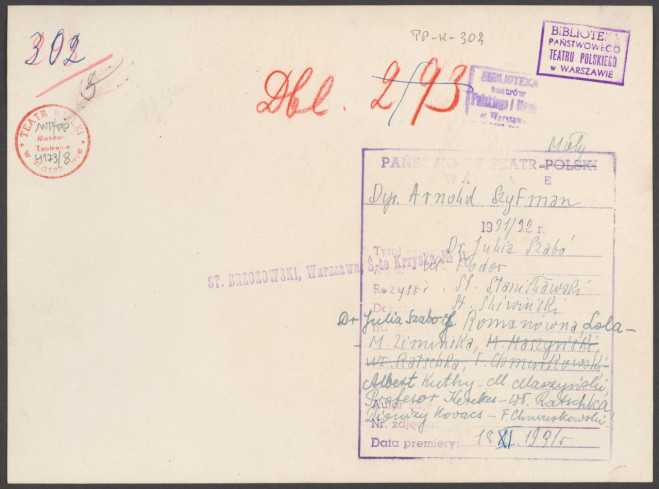 302
PP-K-302
BIBLIOTEKA
PAŃSTWOWEGO
TEATRU POLSKIEGO
w WARSZAWIE
Dbl. 2/93
BIBLIOTEKA
teatrów
Polskiego i
w Warszawie
TEATR POLSKI
Muzeum
Teatralne
H173/8
Mały
PAŃSTWOWY TEATR POLSKI
W
Dyr. Arnold Szyfman
1931/32 r.
Tytuł Dr Julia Szabó
ST. BRZOZOWSKI, Warszawa, Ś-to Krzyska
Fodor
Reżyser St. Stanisławski
St. Śliwiński
Dr Julia Szabo - J Romanówna, Lola -
- M. Zimińska, M. Maszyński
Wł. Ratschka, F. Chmurkowski
Albert Kuthy - M. Maszyński
Profesor Kerekes - Wł. Ratschka
Autor
Dionizy Kovacs - F. Chmurkowski
Nr. zdjęcia
Data premiery: 18 XI. 1931 r